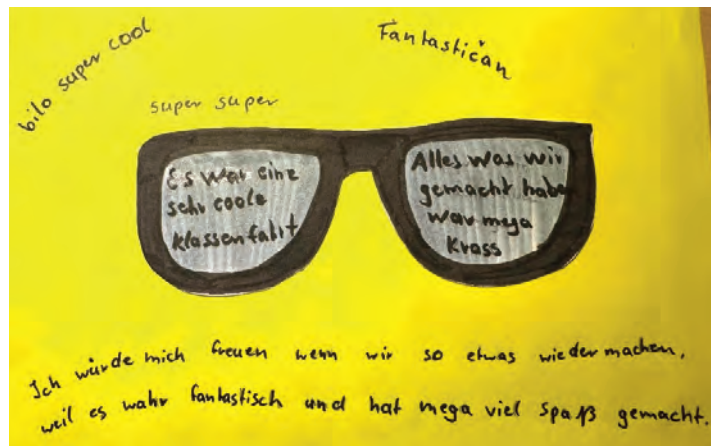 bilo super cool
Fantastičan
super super
Es war eine
sehr coole
klassenfahrt
Alles was wir
gemacht habe
war mega
krass
Ich würde mich freuen wenn wir so etwas wieder machen,
weil es wahr fantastisch und hat mega viel spaß gemacht.